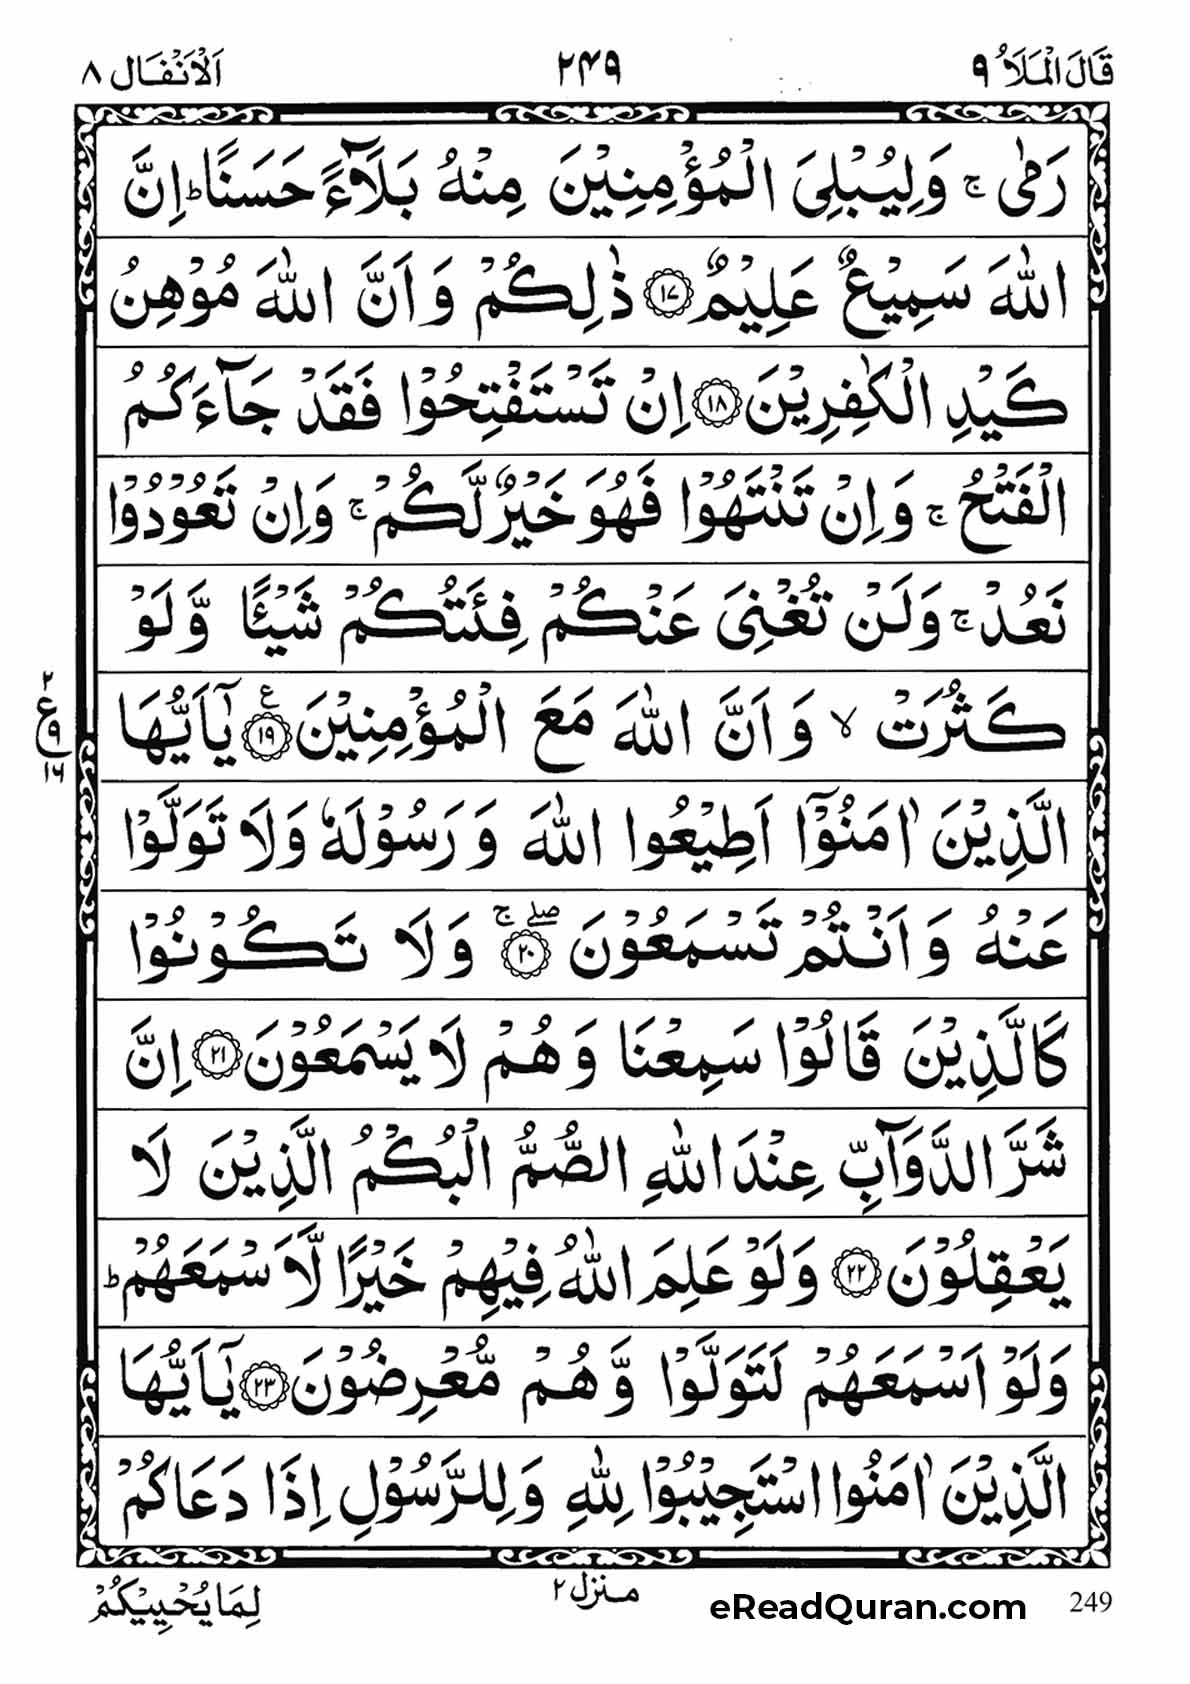 قَالَ الْمَلَاُ ٩ ٢٤٩ اَلْاَنْفَال ٨
رَمٰى ۚ وَلِيُبْلِىَ الْمُؤْمِنِيْنَ مِنْهُ بَلَآءً حَسَنًا ؕ اِنَّ
اللّٰهَ سَمِيْعٌ عَلِيْمٌ ﴿١٧﴾ ذٰلِكُمْ وَاَنَّ اللّٰهَ مُوْهِنُ
كَيْدِ الْكٰفِرِيْنَ ﴿١٨﴾ اِنْ تَسْتَفْتِحُوْا فَقَدْ جَآءَكُمُ
الْفَتْحُ ۚ وَاِنْ تَنْتَهُوْا فَهُوَ خَيْرٌ لَّكُمْ ۚ وَاِنْ تَعُوْدُوْا
نَعُدْ ۚ وَلَنْ تُغْنِىَ عَنْكُمْ فِئَتُكُمْ شَيْـًٔا وَّلَوْ
كَثُرَتْ ۙ وَاَنَّ اللّٰهَ مَعَ الْمُؤْمِنِيْنَ ﴿١٩﴾ ع يٰۤاَيُّهَا
٢ ع ٩ ١٦
الَّذِيْنَ اٰمَنُوْۤا اَطِيْعُوا اللّٰهَ وَرَسُوْلَهٗ وَلَا تَوَلَّوْا
عَنْهُ وَاَنْتُمْ تَسْمَعُوْنَ ﴿٢٠﴾ ۖ ۚ وَلَا تَكُوْنُوْا
كَالَّذِيْنَ قَالُوْا سَمِعْنَا وَهُمْ لَا يَسْمَعُوْنَ ﴿٢١﴾ اِنَّ
شَرَّ الدَّوَآبِّ عِنْدَ اللّٰهِ الصُّمُّ الْبُكْمُ الَّذِيْنَ لَا
يَعْقِلُوْنَ ﴿٢٢﴾ وَلَوْ عَلِمَ اللّٰهُ فِيْهِمْ خَيْرًا لَّاَسْمَعَهُمْ ؕ
وَلَوْ اَسْمَعَهُمْ لَتَوَلَّوْا وَّهُمْ مُّعْرِضُوْنَ ﴿٢٣﴾ يٰۤاَيُّهَا
الَّذِيْنَ اٰمَنُوا اسْتَجِيْبُوْا لِلّٰهِ وَلِلرَّسُوْلِ اِذَا دَعَاكُمْ
لِمَا يُحْيِيْكُمْ منزل ٢ eReadQuran.com 249